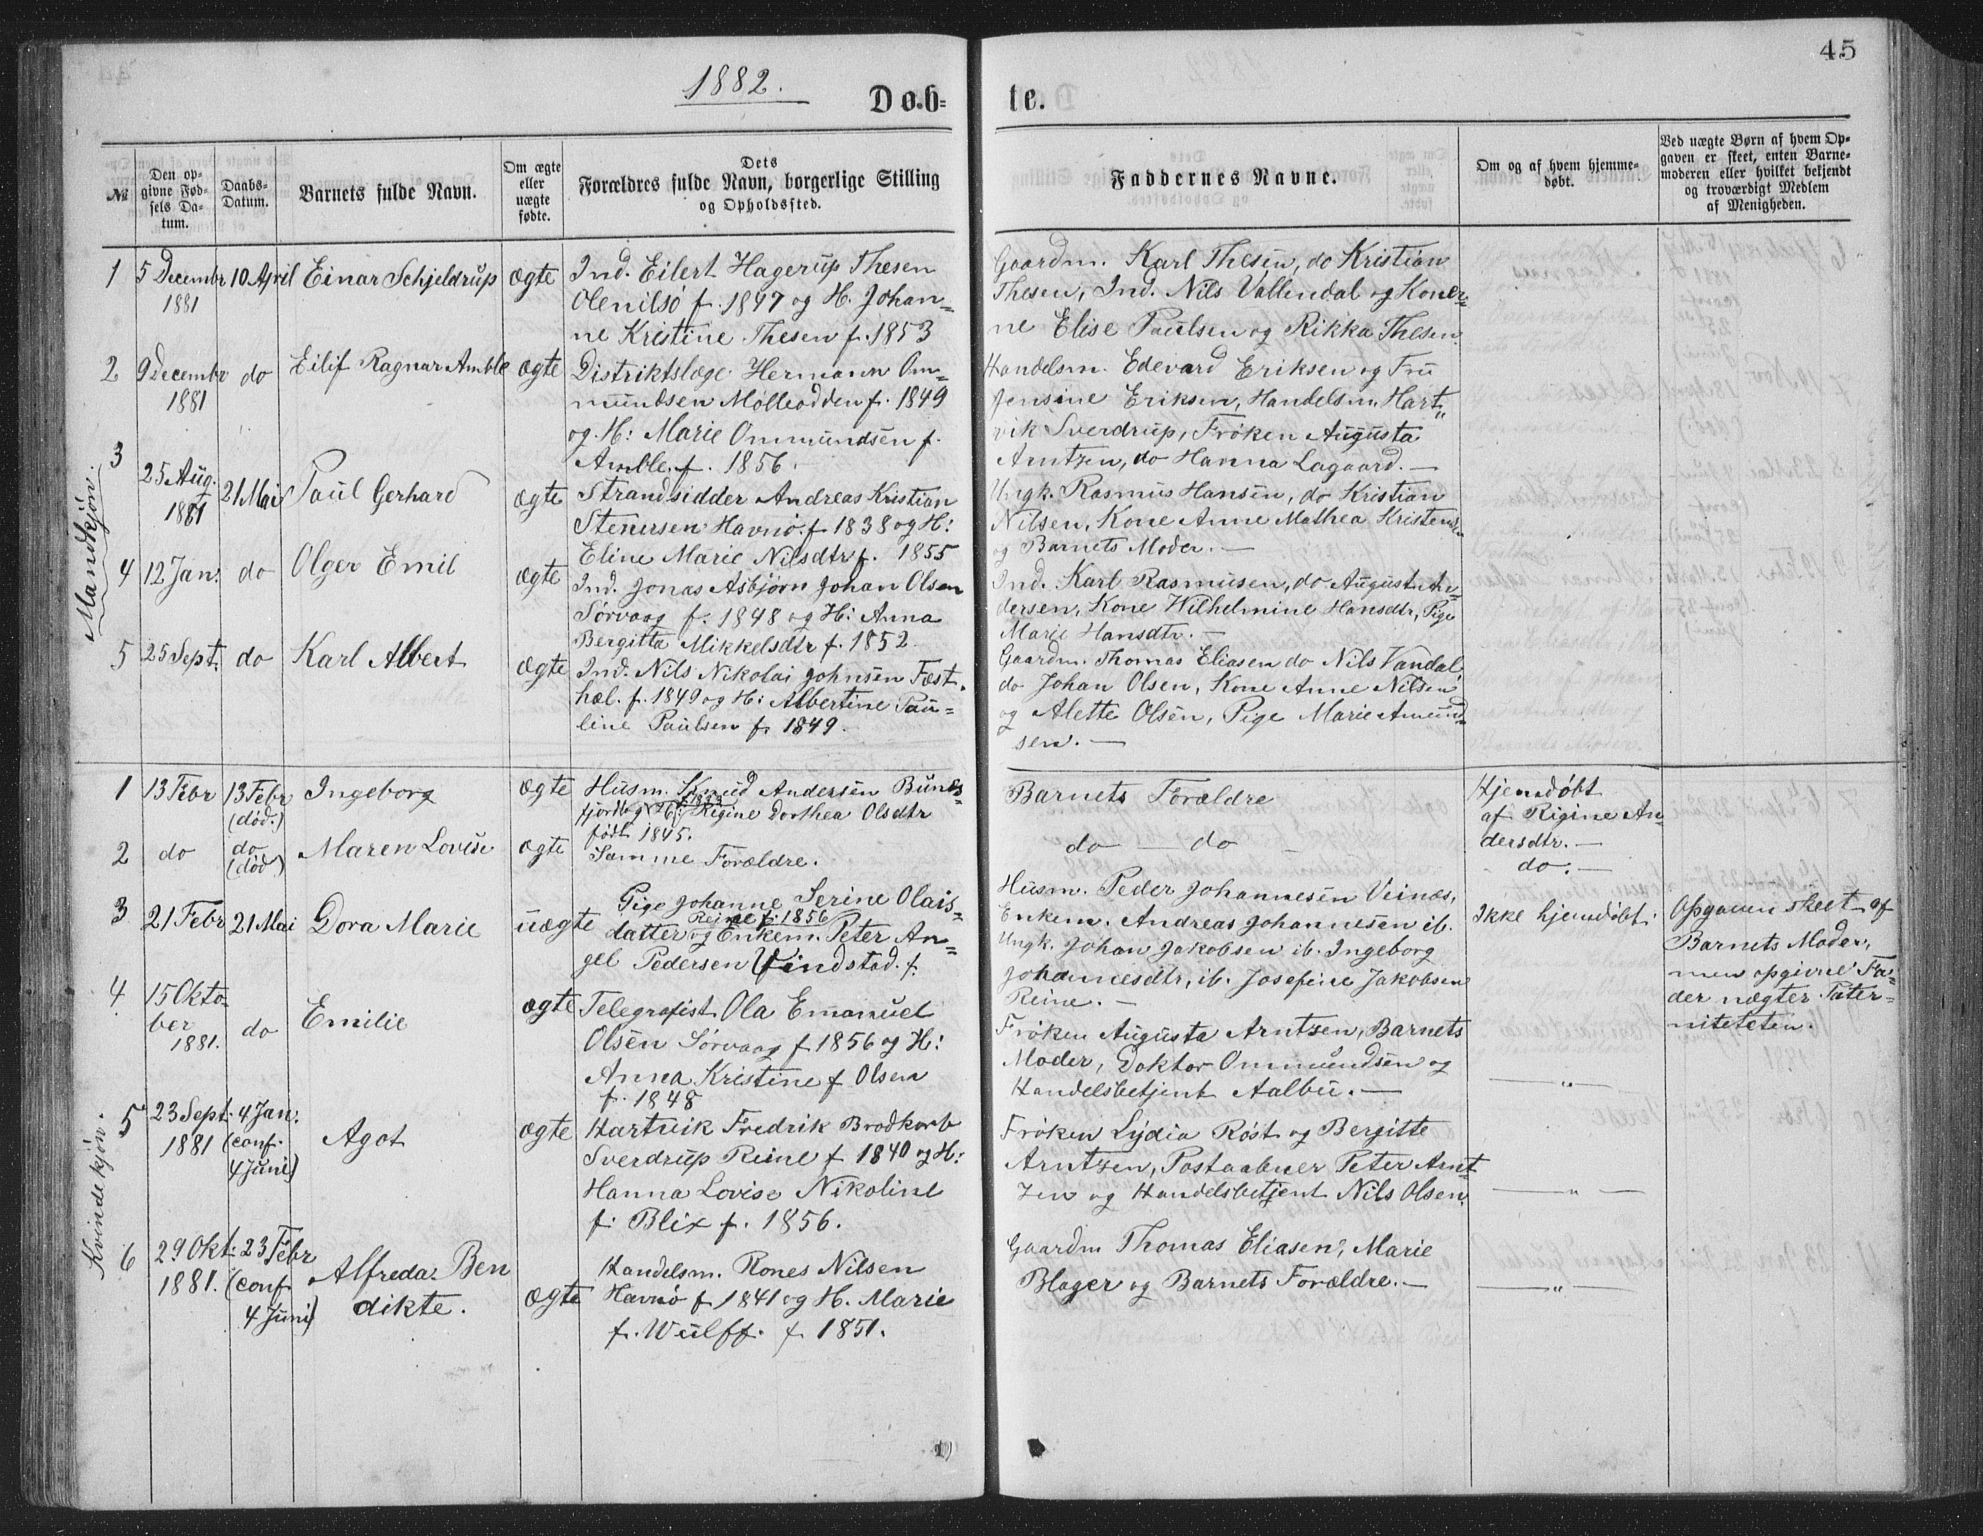 45
1882.
Døb-
te.
№
Den op-
givne Fød-
sels Da-
tum.
Daabs-
Datum.
Barnets fulde Navn.
Om ægte
eller
uægte
fødte.
Dets
Forældres fulde Navn, borgerlige Stilling
og Opholdssted.
Faddernes Navne.
Om og af hvem hjemme-
døbt.
Ved uægte Børn af hvem Op-
gaven er skeet, enten Barne-
moderen eller hvilket bekjendt
og troværdigt Medlem
af Menigheden.
Mandkjøn.
1
5 Decembr
1881
10 April
Einar Schjeldrup
ægte
Ind. Eilert Hagerup Thesen
Olenilsö f. 1847 og H. Johan-
ne Kristine Thesen f. 1853
Gaardm. Karl Thesen, do Kristian
Thesen, Ind. Nils Vallendal og Koner-
ne Elise Paulsen og Rikka Thesen.
2
9 Decembr
1881
do
Eilif Ragnar Amble
ægte
Distriktslæge Hermann Om-
mundsen Mølleodden f. 1849
og H: Marie Ommundsen f.
Amble f. 1856.
Handelsm. Edevard Eriksen og Fru
Jensine Eriksen, Handelsm. Hart-
vik Sverdrup, Frøken Augusta
Arntzen, do Hanna Lagaard. —
3
25 Aug.
1881
21 Mai
Paul Gerhard
ægte
Strandsidder Andreas Kristian
Stenersen Havnø. f 1838 og H:
Eline Marie Nilsdtr f. 1855
Ungk. Rasmus Hansen, do Kristian
Nilsen, Kone Anne Mathea Kristensen
og Barnets Moder. —
4
12 Jan:
do
Olger Emil
ægte
Ind. Jonas Asbjørn Johan Olsen
Sørvaag f. 1848 og H: Anna
Bergitta Mikkelsdtr f. 1852.
Ind. Karl Rasmusen, do August An-
dersen, Kone Wilhelmine Hansdtr, Pige
Marie Hansdtr. —
5
25 Sept.
do
Karl Albert
ægte
Ind. Nils Nikolai Johnsen Fast-
hæl. f. 1849 og H: Albertine Pau-
line Paulsen f. 1849.
Gaardm. Thomas Eliasen do Nils Vandal
do Johan Olsen, Kone Anne Nilsen
og Alette Olsen, Pige Marie Amund-
sen. —
Kvindekjøn.
1
13 Febr
13 Febr
(død.)
Ingeborg
ægte
Husm. Knud Andersen Bunes-
fjord og H: Regine Dorthea Olsdtr
født 1845.
Barnets Forældre
Hjemdøbt
af Rigine An-
dersdtr. —
2
do
do
(død.)
Maren Lovise
ægte
Samme Forældre.
do — do —
do. —
3
21 Febr
21 Mai
Dora Marie
uægte
Pige Johanne Serine Olais-
Reine f. 1856
datter og Enkem. Peter An-
gel Pedersen Vindstad. f.
Husm. Peder Johannesen Veinæs,
Enkem. Andreas Johannesen ib.
Ungk. Johan Jakobsen ib. Ingeborg
Johannesdtr, ib. Josefine Jakobsen
Reine. —
Ikke hjemdøbt.
Opgaven skeet af
Barnets Moder,
men opgivne Fa-
der nægter Pater-
niteteten.
4
15 Okto-
ber
1881.
do
Emilie
ægte
Telegrafist Ola Emanuel
Olsen Sørvaag f 1856 og H:
Anna Kristine f Olsen
f. 1848
Frøken Augusta Arntzen, Barnets
Moder, Doktor Ommundsen og
Handelsbetjent Aalbu. —
— " —
5
23 Sept.
1881
4 Jan:
(conf.
4 Juni)
Agot
ægte
Hartvik Fredrik Brodkorb
Sverdrup Reine f 1840 og H:
Hanna Lovise Nikoline
f: Blix f. 1856.
Frøken Lydia Røst og Bergitte
Arntzen, Postaabner Peter Arnt-
zen og Handelsbetjent Nils Olsen.
— " —
6
29 Okt:
1881.
23 Febr
(conf
4 Juni)
Alfreda Ben
dikte.
ægte
Handelsm. Rones Nilsen
Havnø f 1841 og H. Marie
f. Wulff. f 1851.
Gaardm Thomas Eliasen, Marie
Blager og Barnets Forældre. —
— " —